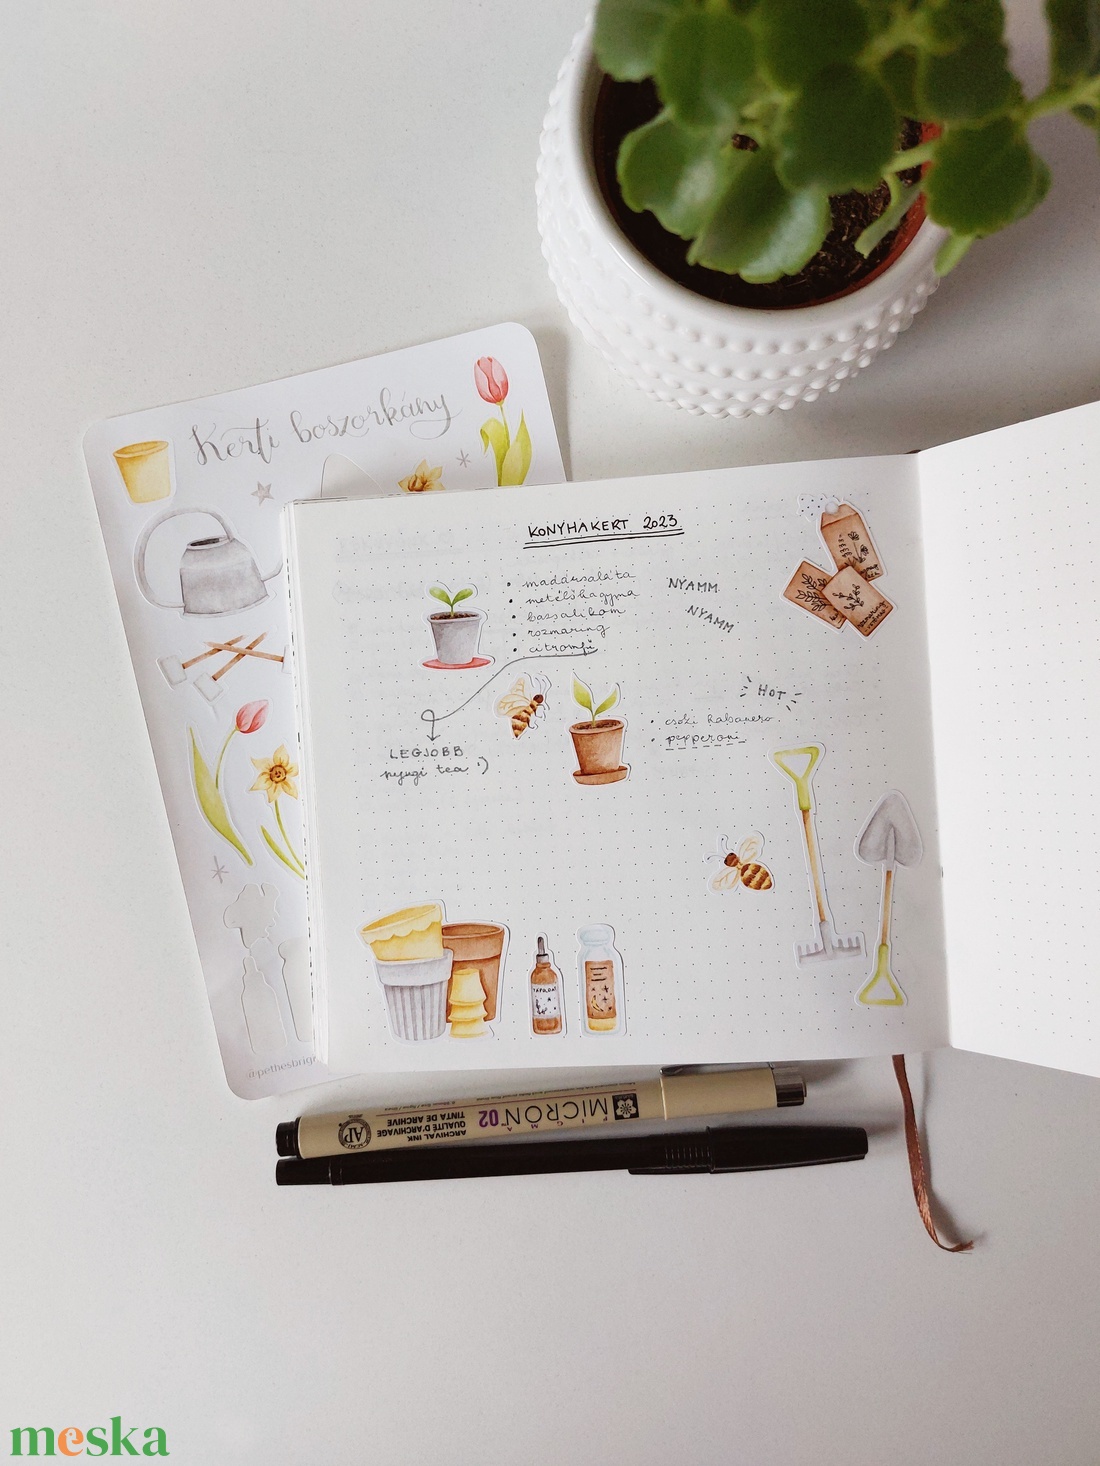 Kerti boszorkány
KONYHAKERT 2023
• madársaláta
• metélőhagyma
• bazsalikom
• rozmaring
• citromfű
NYAMM
NYAMM
HOT
• csoki habanero
• pepperoni
LEGJOBB
nyugi tea :)
@pethesbrigi
PIGMA
MICRON 02
ARCHIVAL INK
QUALITÉ D'ARCHIVAGE
TINTA DE ARCHIVE
AP
meska